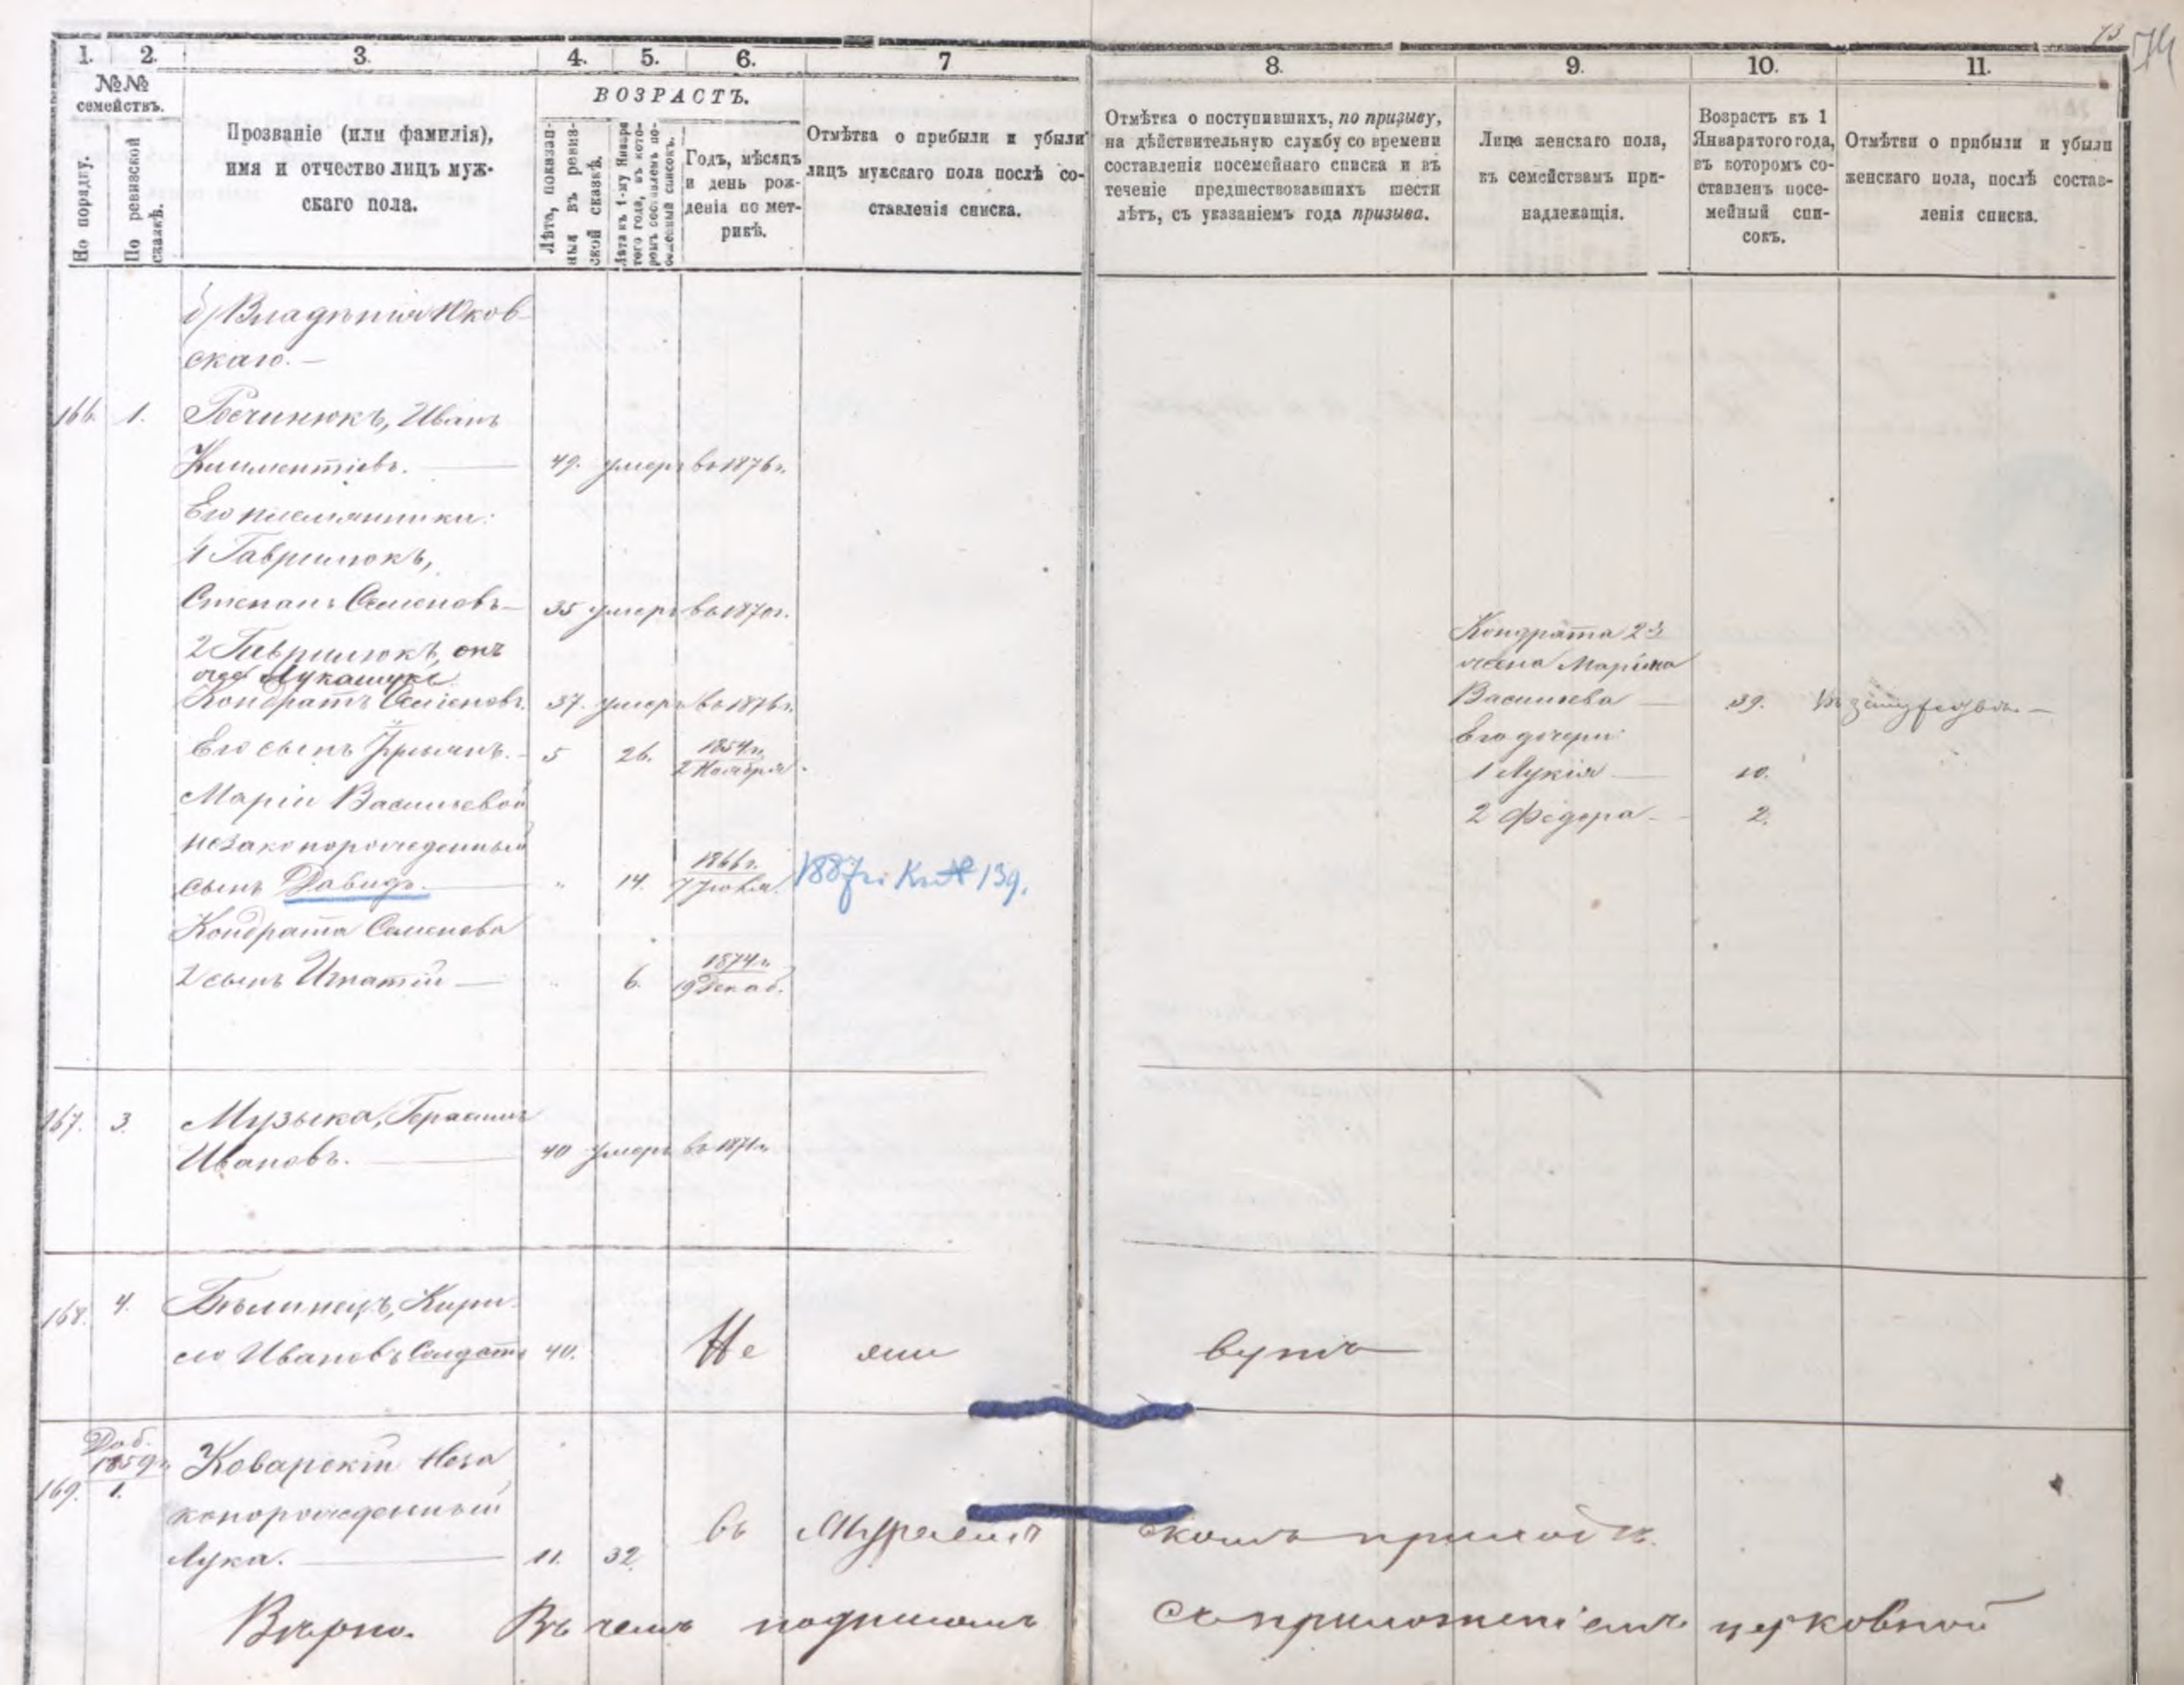 73
74
1. 2. 3. 4. 5. 6. 7
№№ семействъ.
По порядку.
По ревизской сказкѣ.
Прозваніе (или фамилія),
имя и отчество лицъ муж-
скаго пола.
ВОЗРАСТЪ.
Лѣта, показан-
ныя въ ревиз-
ской сказкѣ.
Лѣта къ 1-му Января
того года, въ кото-
ромъ составленъ по-
семейный списокъ.
Годъ, мѣсяцъ
и день рож-
денія по мет-
рикѣ.
Отмѣтка о прибыли и убыли
лицъ мужскаго пола послѣ со-
ставленія списка.
8. 9. 10. 11.
Отмѣтка о поступившихъ, по призыву,
на дѣйствительную службу со времени
составленія посемейнаго списка и въ
теченіе предшествовавшихъ шести
лѣтъ, съ указаніемъ года призыва.
Лица женскаго пола,
къ семействамъ при-
надлежащія.
Возрастъ къ 1
Января того года,
въ которомъ со-
ставленъ посе-
мейный спи-
сокъ.
Отмѣтки о прибыли и убыли
женскаго пола, послѣ состав-
ленія списка.
б) Владѣнія Юков-
скаго.
166. 1. Иванъ
Климентіевъ. 49. умеръ въ 1876 г.
Его племянники:
1 Гаврилюкъ,
Степанъ Семеновъ 35 умеръ въ 1870 г.
2 Гаврилюкъ, онъ
же Лукашукъ
Кондратъ Семеновъ. 37. умеръ въ 1876 г.
Его сынъ 5 26. 1854 г.
2 Ноября
Маріи Васильевой
незаконорожденный
сынъ Давидъ. " 14. 1866 г.
7 Іюля. 1887 г. Кн № 139.
Кондрата Семенова
2 сынъ Игнатій " 6. 1874 г.
19 Декаб.
Кондрата 2й
жена Маріна
Васильева 39. въ замужество
Его дочери:
1 Лукія 10.
2 Федора 2.
167. 3. Музыка, Герасимъ
Ивановъ. 40 умеръ въ 1871 г.
168. 4. Бѣлинецъ, Кири-
ло Ивановъ Солдатъ 40. Не яви вутъ
169. Доб. 1859 г. 1. Коварскій Неза
конорожденный
Лука. 11. 32 въ скомъ приходѣ.
Вѣрно. Въ чемъ подписомъ съ приложеніемъ церковной